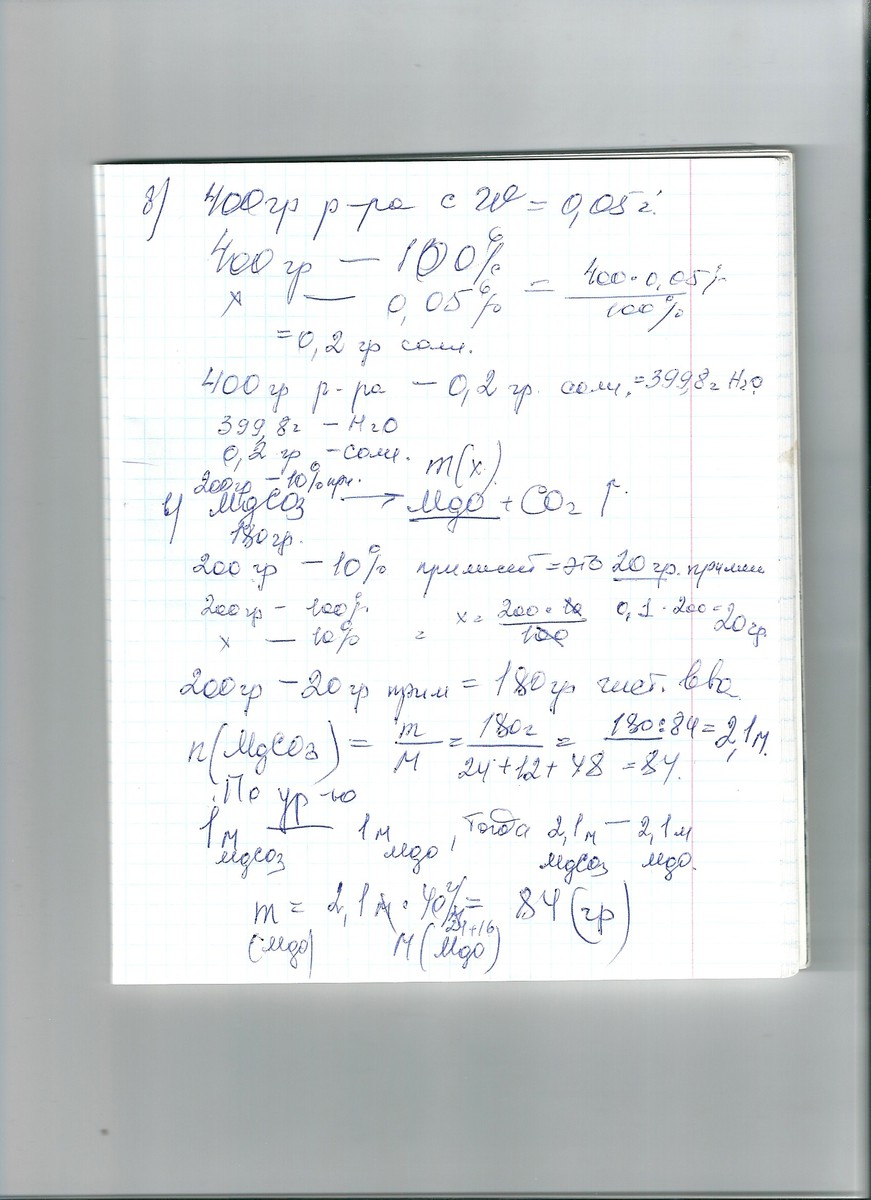 б) 400 гр р-ра с W = 0,05 г.
400 гр — 100%
x — 0,05% = 400·0,05% / 100%
= 0,2 гр соли.
400 гр р-ра — 0,2 гр. соли. = 399,8 г H2O
399,8 г — H2O
0,2 гр — соли.
m(x)
200 гр — 10% при.
в) MgCO3 → MgO + CO2 ↑
180 гр.
200 гр — 10% примесей = это 20 гр. примеси
200 гр — 100%
x — 10% = x = 200·10 / 100 0,1·200 = 20 гр.
200 гр — 20 гр прим = 180 гр чист. в-ва
n(MgCO3) = m / M = 180 г / 24+12+48 = 84. = 180:84 = 2,1 м.
По ур-ю
1 м — 1 м, тогда 2,1 м — 2,1 м
MgCO3 MgO MgCO3 MgO.
m = 2,1 м · 40 г/м = 84 (гр)
24+16
(MgO) M(MgO)